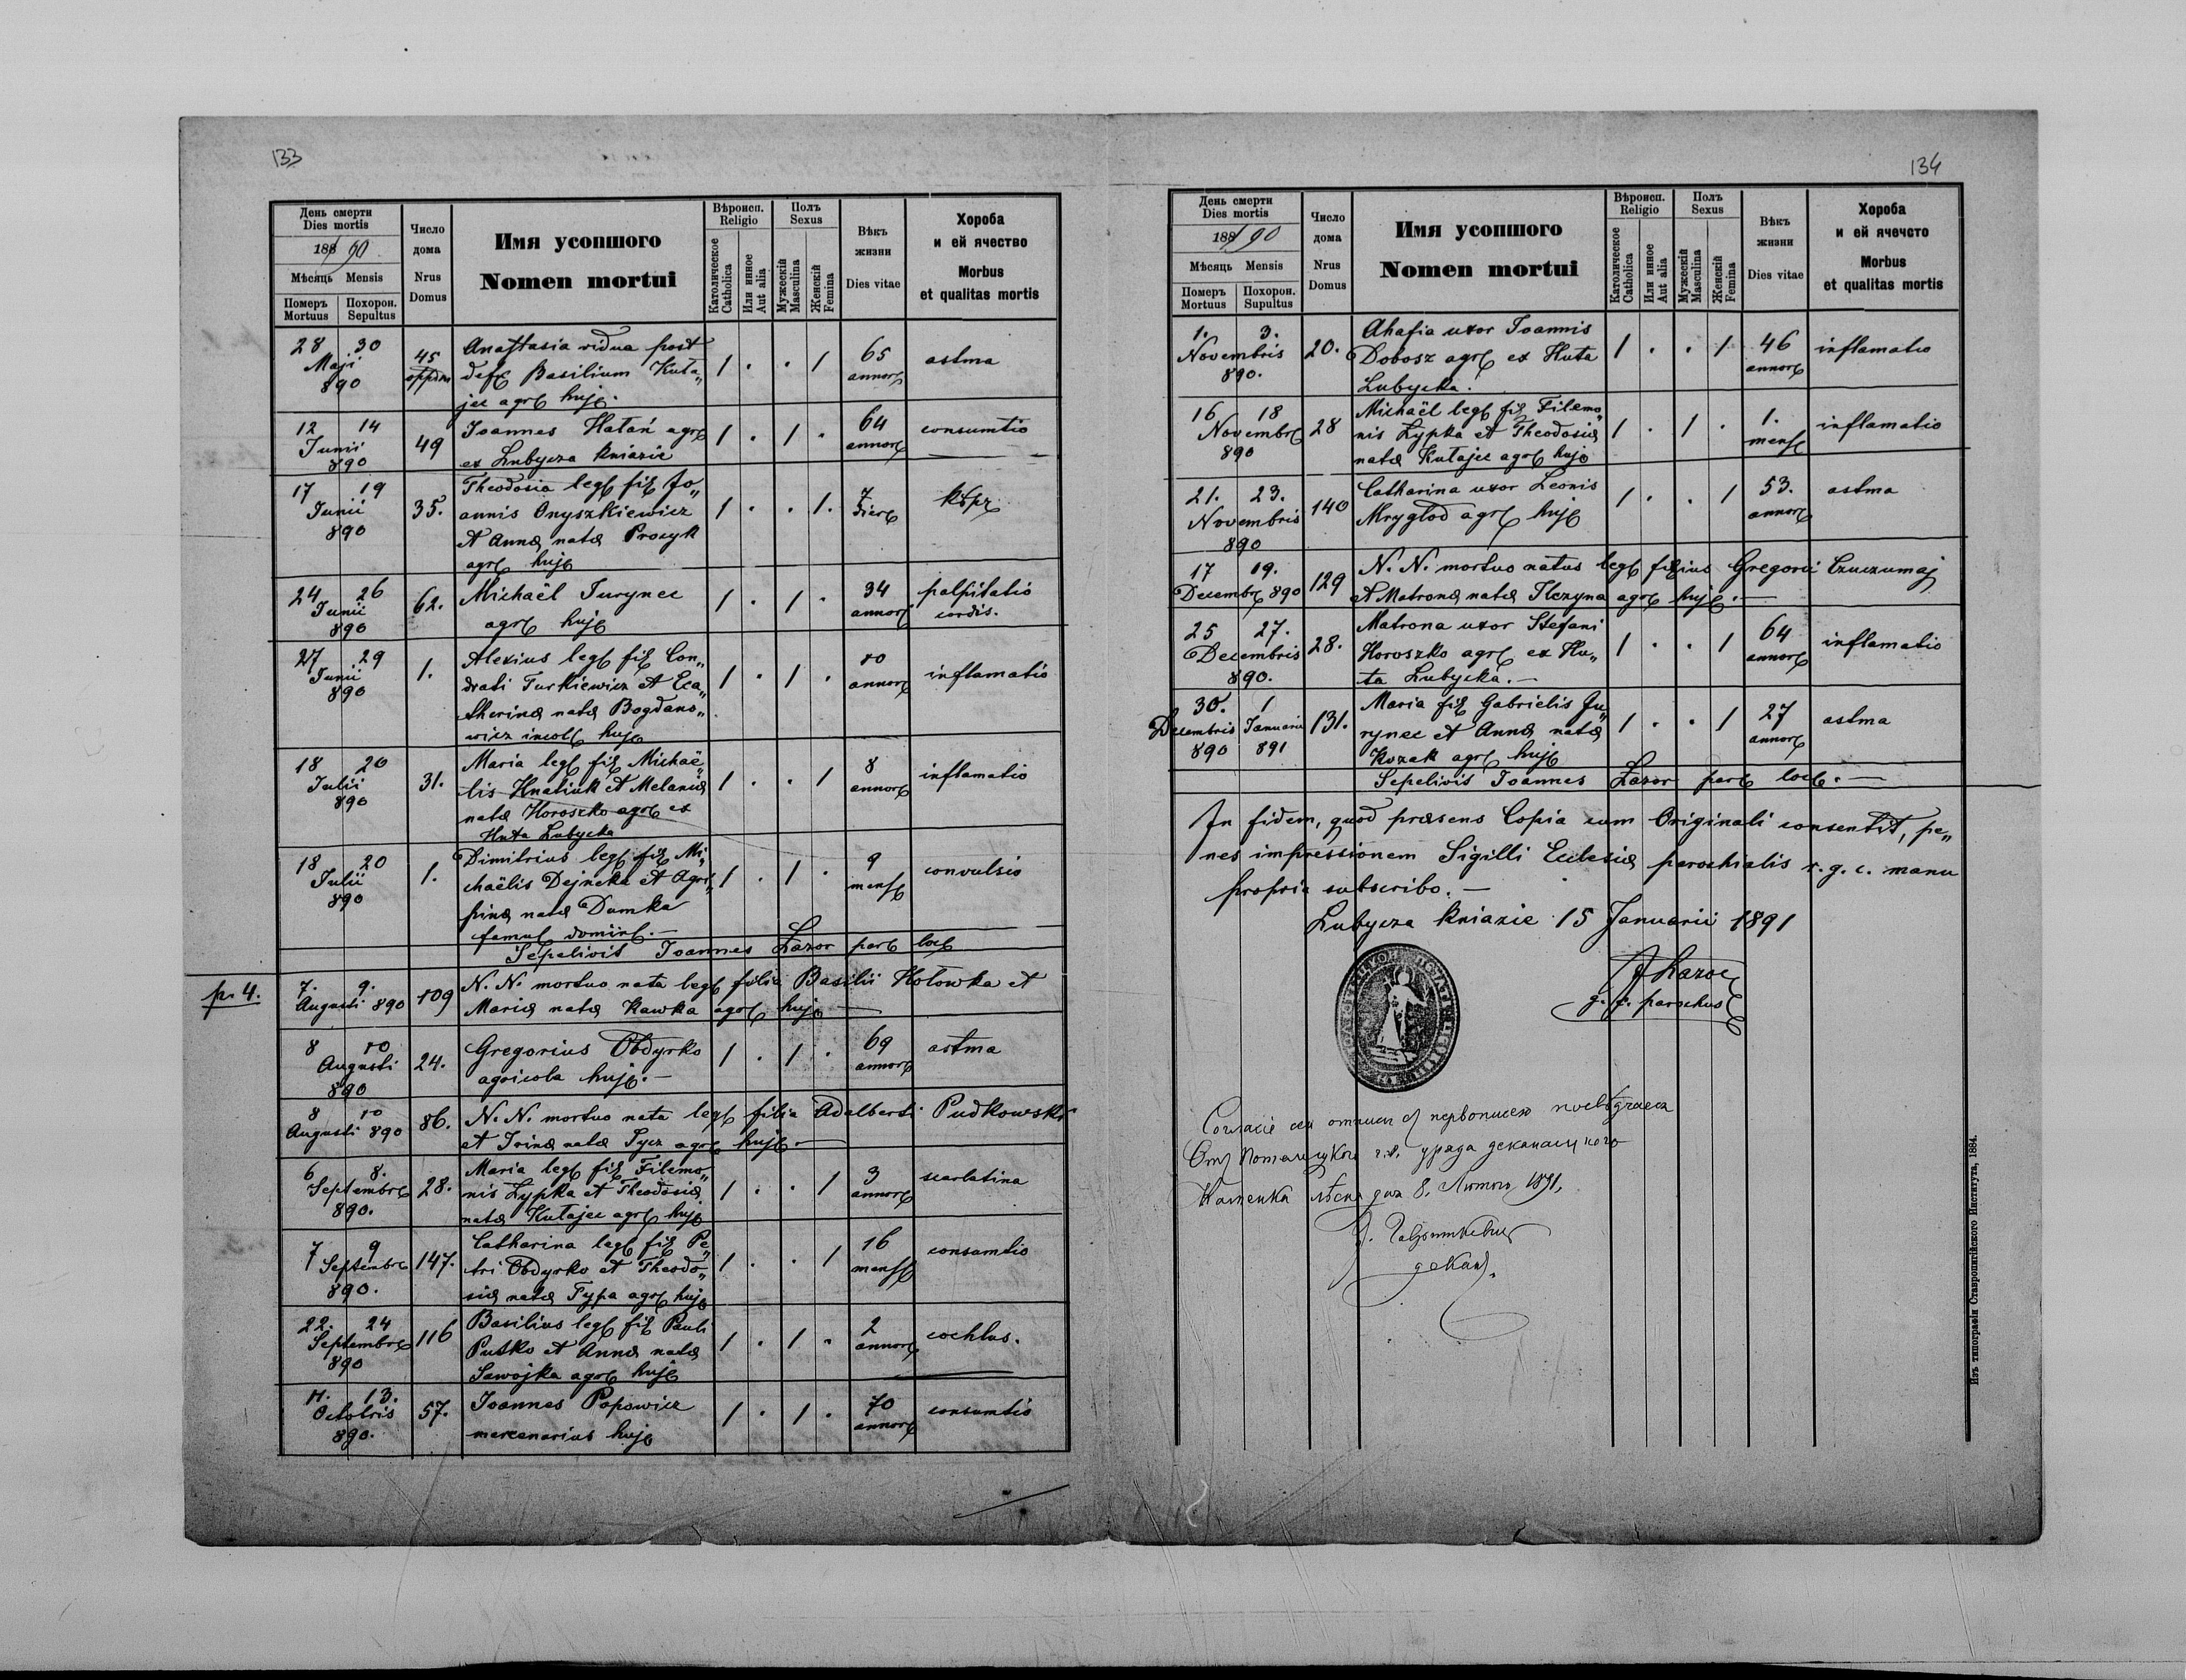 133
День смерти
Dies mortis
188/90.
Мѣсяць Mensis
Померъ Похорон.
Mortuus Sepultus
Число
дома
Nrus
Domus
Имя усопшого
Nomen mortui
Вѣроисп.
Religio
Католическое
Catholica
Или инное
Aut alia
Полъ
Sexus
Мужескій
Masculina
Женскій
Femina
Вѣкъ
жизни
Dies vitae
Хороба
и ей ячество
Morbus
et qualitas mortis
28 30
Maji
890
45
Anastasia vidua post
def Basilium Kuta„
jec agr huj.
1 . . 1
65
annor
astma
12 14
Junii
890
49
Joannes Hatań agr
ex Lubycza kniazie
1 . 1 .
64
annor
consumtio
17 19
Junii
890
35.
Theodosia leg fil Jo„
annis Onyszkiewicz
et Annæ natæ Procyk
agr huj
1 . . 1.
7
dier
24 26
Junii
890
62.
Michaël Jurynec
agr huj
1 . 1 .
34
annor
palpitatio
cordis.
27 29
Junii
890
1.
Alexius leg fil Con„
drati Turkiewicz et Eca„
therinæ natæ Bogdano„
wicz incol huj
1 . 1 .
10
annor
inflamatio
18 20
Julii
890
31.
Maria leg fil Michaë„
lis Hnatiuk et Melaniæ
natæ Horoszko agr ex
Huta Lubycka
1 . . 1
8
annor
inflamatio
18 20
Julii
890
1.
Dimitrius leg fil Mi„
chaëlis Dejneka et Agri„
pinæ natæ Dumka
famul domin.—
1 . 1 .
9
mens
convulsio
Sepelivit Joannes Łazor par loc
pr. 4.
7. 9.
Augusti 890
109
N. N. mortuo nata leg filia Basilii Hołowka et
Mariæ natæ Kawka agr huj
8 10
Augusti
890
24.
Gregorius Obdyrko
agricola huj.—
1 . 1 .
69
annor
astma
8 10
Augusti 890
86.
N. N. mortuo nata leg filia Adalberti Pudkowski
et Irinæ natæ Tycz agr huj.—
6 8.
Septembr
890.
28.
Maria leg fil Filemo„
nis Łypka et Theodosiæ
natæ Kutajec agr huj
1 . . 1
3
annor
scarlatina
7 9
Septembr
890.
147.
Catharina leg fil Pe„
tri Obdyrko et Theodo„
siæ natæ Typa agr huj
1 . . 1
16
mens
consumtio
22. 24
Septembr
890
116
Basilius leg fil Pauli
Putko et Annæ natæ
Sawojka agr huj
1 . 1 .
2
annor
cochlus.
11. 13.
Octobris
890.
57.
Joannes Popowicz
mercenarius huj
1 . 1 .
70
annor
consumtio
134
День смерти
Dies mortis
188/90
Мѣсяць Mensis
Померъ Похорон.
Mortuus Supultus
Число
дома
Nrus
Domus
Имя усопшого
Nomen mortui
Вѣроисп.
Religio
Католическое
Catholica
Или инное
Aut alia
Полъ
Sexus
Мужескій
Masculina
Женскій
Femina
Вѣкъ
жизни
Dies vitae
Хороба
и ей ячечсто
Morbus
et qualitas mortis
1. 3.
Novembris
890.
20.
Ahafia uxor Joannis
Dobosz agr ex Huta
Lubycka.
1 . . 1
46
annor
inflamatio
16 18
Novembr
890
28
Michaël leg fil Filemo„
nis Łypka et Theodosiæ
natæ Kutajec agr huj
1 . 1 .
1.
mens
inflamatio
21. 23.
Novembris
890
140
Catharina uxor Leonis
Mrygłod agr huj
1 . . 1
53.
annor
astma
17 19.
Decembr 890
129
N. N. mortuo natus leg filius Gregorii Czuczumaj
et Matronæ natæ Ilczyna agr huj.—
25 27.
Decembris
890.
28.
Matrona uxor Stefani
Horoszko agr ex Hu„
ta Lubycka.—
1 . . 1
64
annor
inflamatio
30. 1
Decembris Januarii
890 891
131.
Maria fil Gabrielis Ju„
rynec et Annæ natæ
Kozak agr huj
1 . . 1
27
annor
astma
Sepelivit Joannes Łazor par loc.—
In fidem, quod præsens Copia cum Originali consentit, pe„
nes impressionem Sigilli Ecclesiæ parochialis r. g. c. manu
propria subscribo.—
Lubycza kniazie 15 Januarii 1891
J Łazor
g. c. parochus
Отъ Потелицкого г.к. уряда деканального
Каменка лѣсна дня 8. Лютого 1891.
деканъ.
Изъ типографіи Ставропигійского Института, 1884.